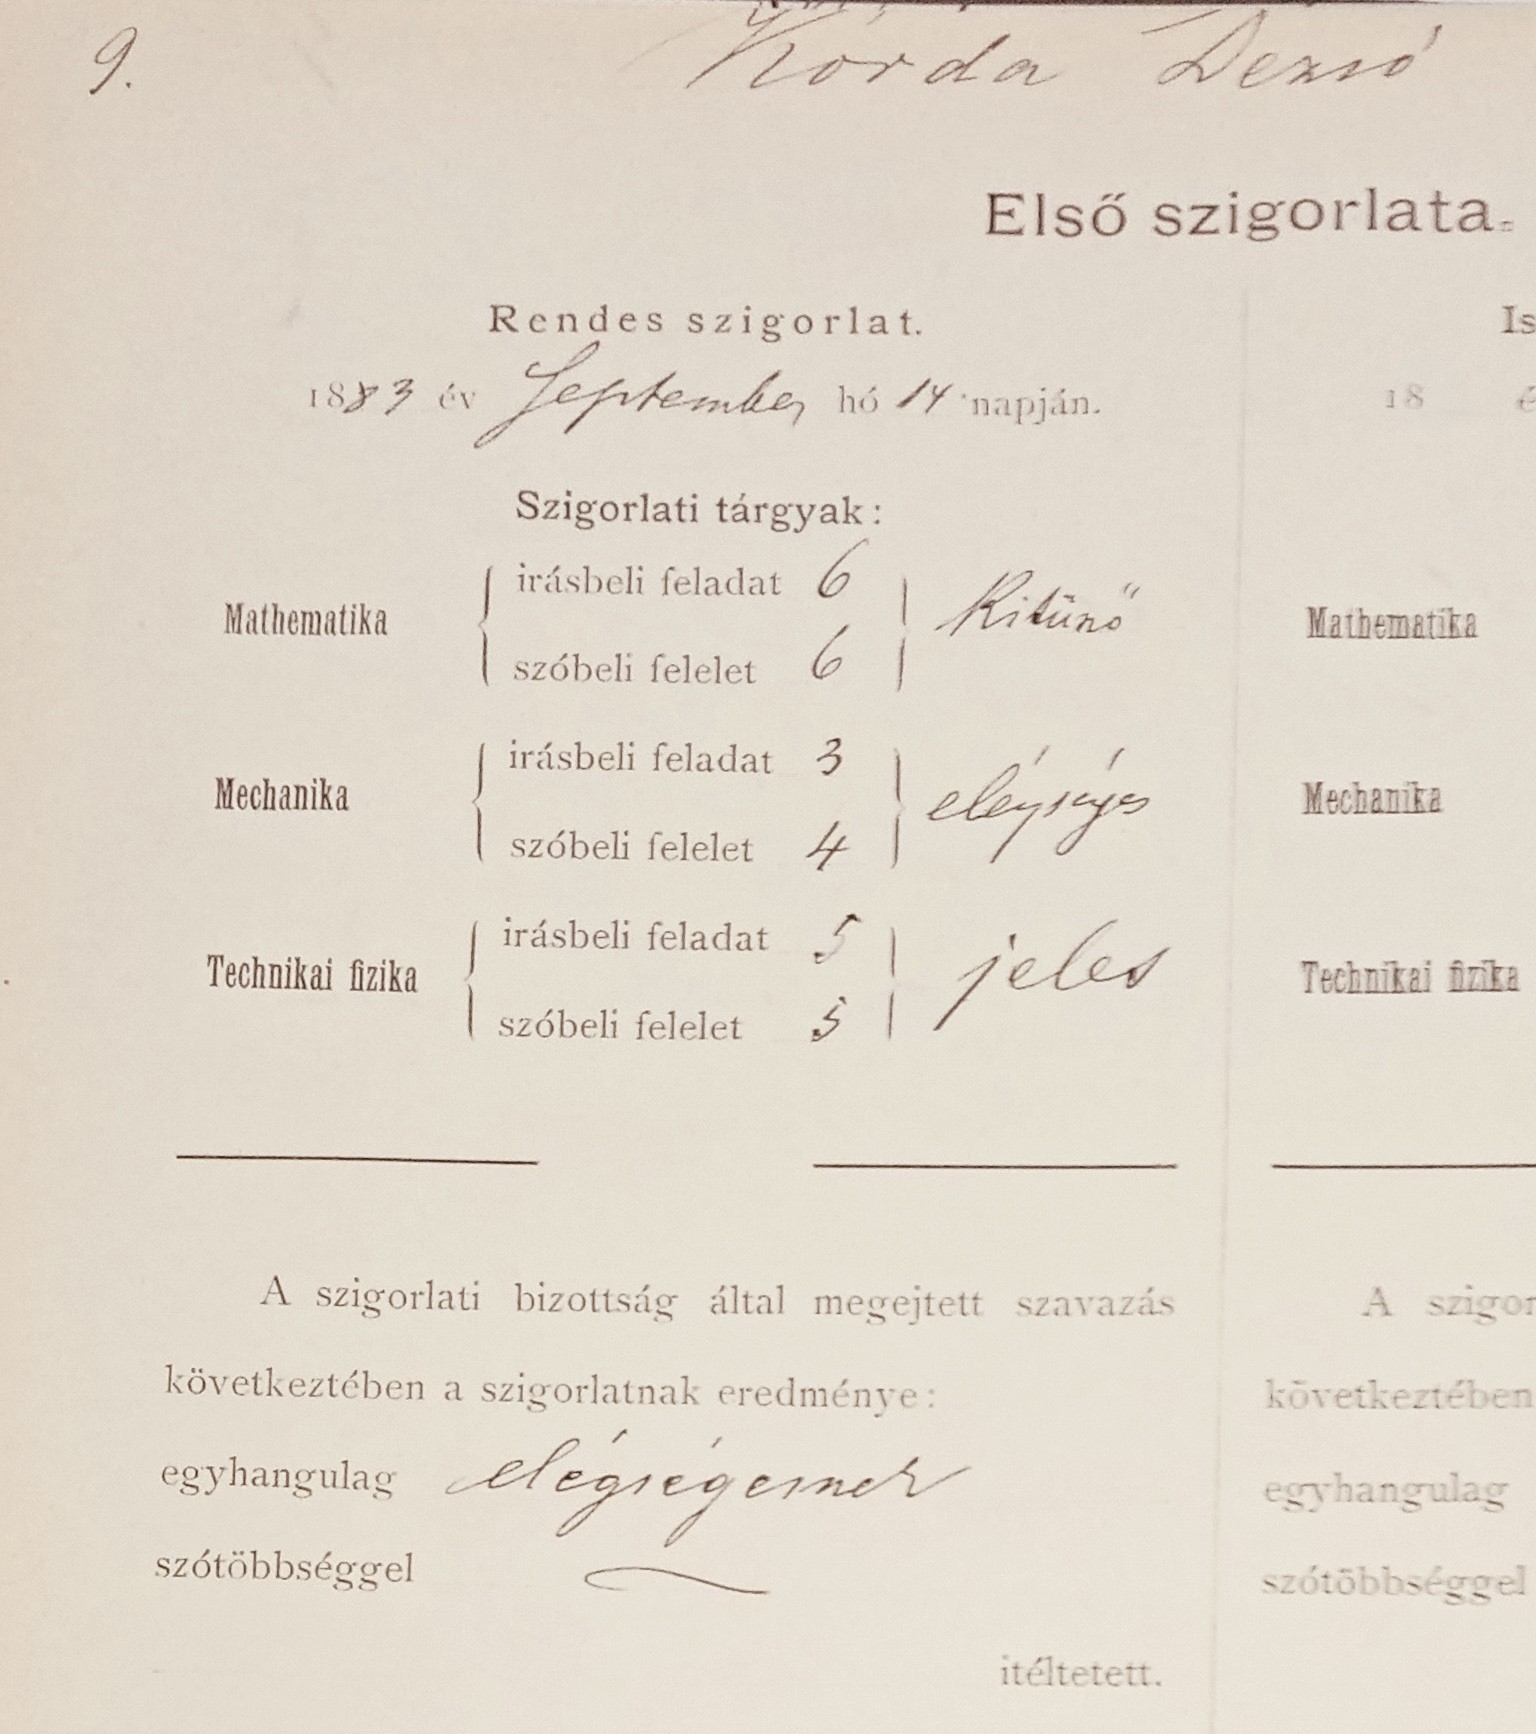 9. Korda Dezső
Első szigorlata.
Rendes szigorlat.
Is
1883 év September hó 14 napján.
18 é
Szigorlati tárgyak:
Mathematika
irásbeli feladat 6
szóbeli felelet 6
Kitünő
Mathematika
Mechanika
irásbeli feladat 3
szóbeli felelet 4
elégséges
Mechanika
Technikai fizika
irásbeli feladat 5
szóbeli felelet 5
jeles
Technikai fizika
A szigorlati bizottság által megejtett szavazás
következtében a szigorlatnak eredménye:
egyhangulag elégségesnek
szótöbbséggel
itéltetett.
A szigor
következtében
egyhangulag
szótöbbséggel